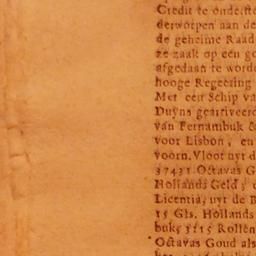 Credit te onderste
derworpen aan de
de geheime Raad
ze zaak op een go
afgedaan te worde
hooge Regeering
Met een Schip va
Duyns gearriveerd
van Fernambuk &
voor Lisbon, en
voorn. Vloot uyt d
37431 Octavas G
Hollands Geld; 
Licentia, uyt de B
15 Gls. Hollands
buk; 3515 Rollen
Octavas Goud als